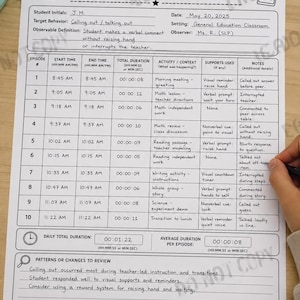 Student Initials: J.M.
Date: May 20, 2025
Target Behavior: Calling out / talking out
Setting: General Education Classroom
Observable Definition: Student makes a verbal comment
without raising hand
or interrupts the teacher
Observer: Ms. R. (SLP)
EPISODE START TIME END TIME TOTAL DURATION ACTIVITY / CONTEXT SUPPORTS USED NOTES
1 8:45 AM 8:45 AM 00:00:08 Morning meeting - greeting Visual reminder: raise hand Called out answer before peer.
2 8:52 AM 8:52 AM Math lesson - teacher directions Verbal prompt: wait your turn Interrupted teacher.
3 9:18 AM 9:18 AM 00:00:06 Math independent work None. Commented to peer across table.
4 9:37 AM 9:37 AM 00:00:10 Math review - class discussion Non-verbal cue: point to visual Called out without raising hand.
5 10:02 AM 10:02 AM 00:00:07 Reading passage - teacher modeling Verbal prompt: raise hand response to question.
6 10:15 AM 10:15 AM 00:00:05 Reading independent work None. Talked out
7 10:33 AM 10:33 AM 00:00:09 Writing activity - instructions Visual reminder: voice Interrupted during steps.
8 10:47 AM 10:47 AM 00:00:06 Whole group - story Verbal prompt: hands to self Commented during story.
9 11:05 AM 11:05 AM 00:00:08 Science - experiment demo Nonverbal cue: look Called out guess.
10 11:22 AM 11:22 AM 00:00:11 Transition to lunch Verbal reminder: quiet voice Talked loudly in line.
DAILY TOTAL DURATION: 00:01:22
AVERAGE DURATION PER EPISODE: 00:00:08
PATTERNS OR CHANGES TO REVIEW
Calling out occurred most during teacher-led instruction and transitions.
Student responded well to visual supports and reminders.
Consider using a reward system for raising hand and waiting.